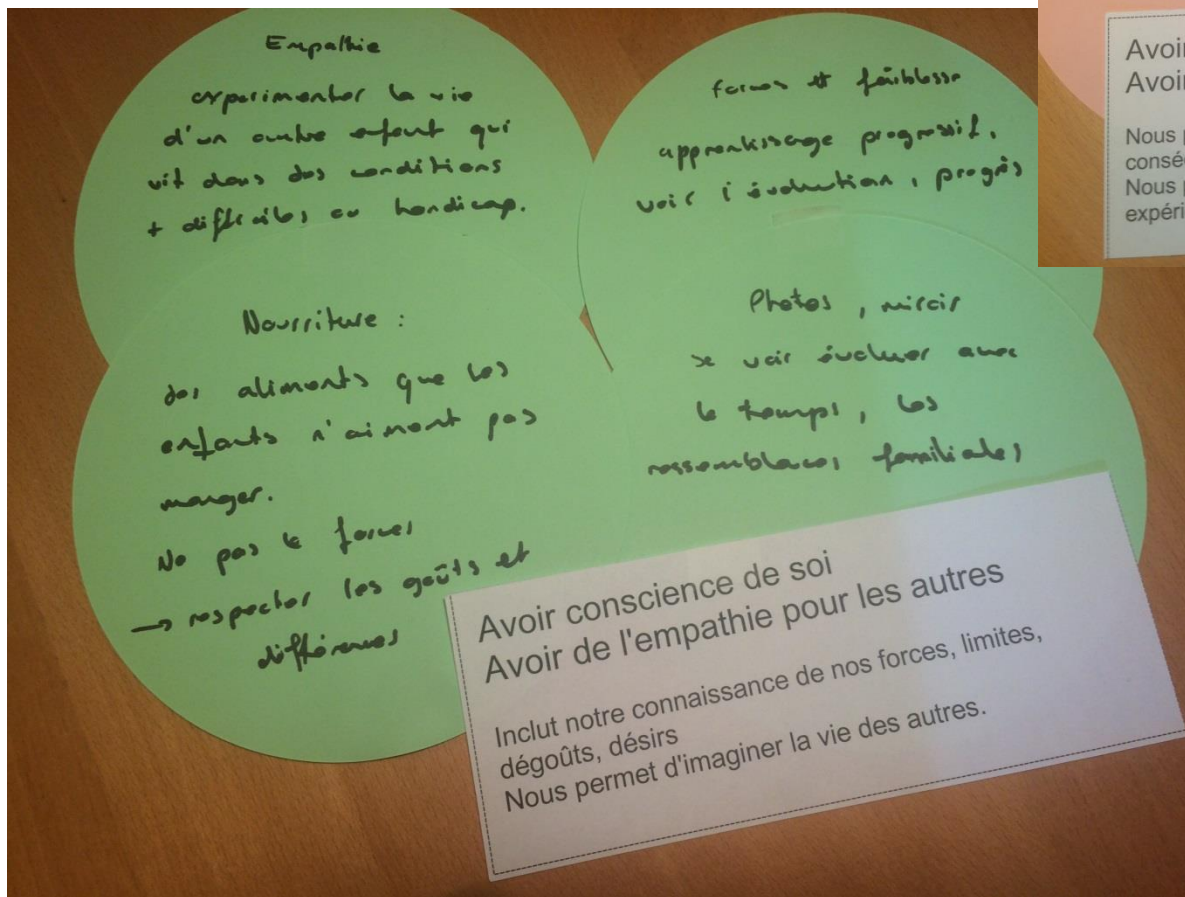 Empathie
experimenter la vie
d'un autre enfant qui
vit dans des conditions
+ difficiles ou handicap.
forces et faiblesse
apprentissage progressif,
voir l'évolution, progrès
Nourriture :
des aliments que les
enfants n'aiment pas
manger.
Ne pas le forcer
→ respecter les goûts et
différences
Photos, miroir
se voir évoluer avec
le temps, les
ressemblances familiales
Avoir conscience de soi
Avoir de l'empathie pour les autres
Inclut notre connaissance de nos forces, limites,
dégoûts, désirs
Nous permet d'imaginer la vie des autres.
Avoir
Avoir
Nous
Nous